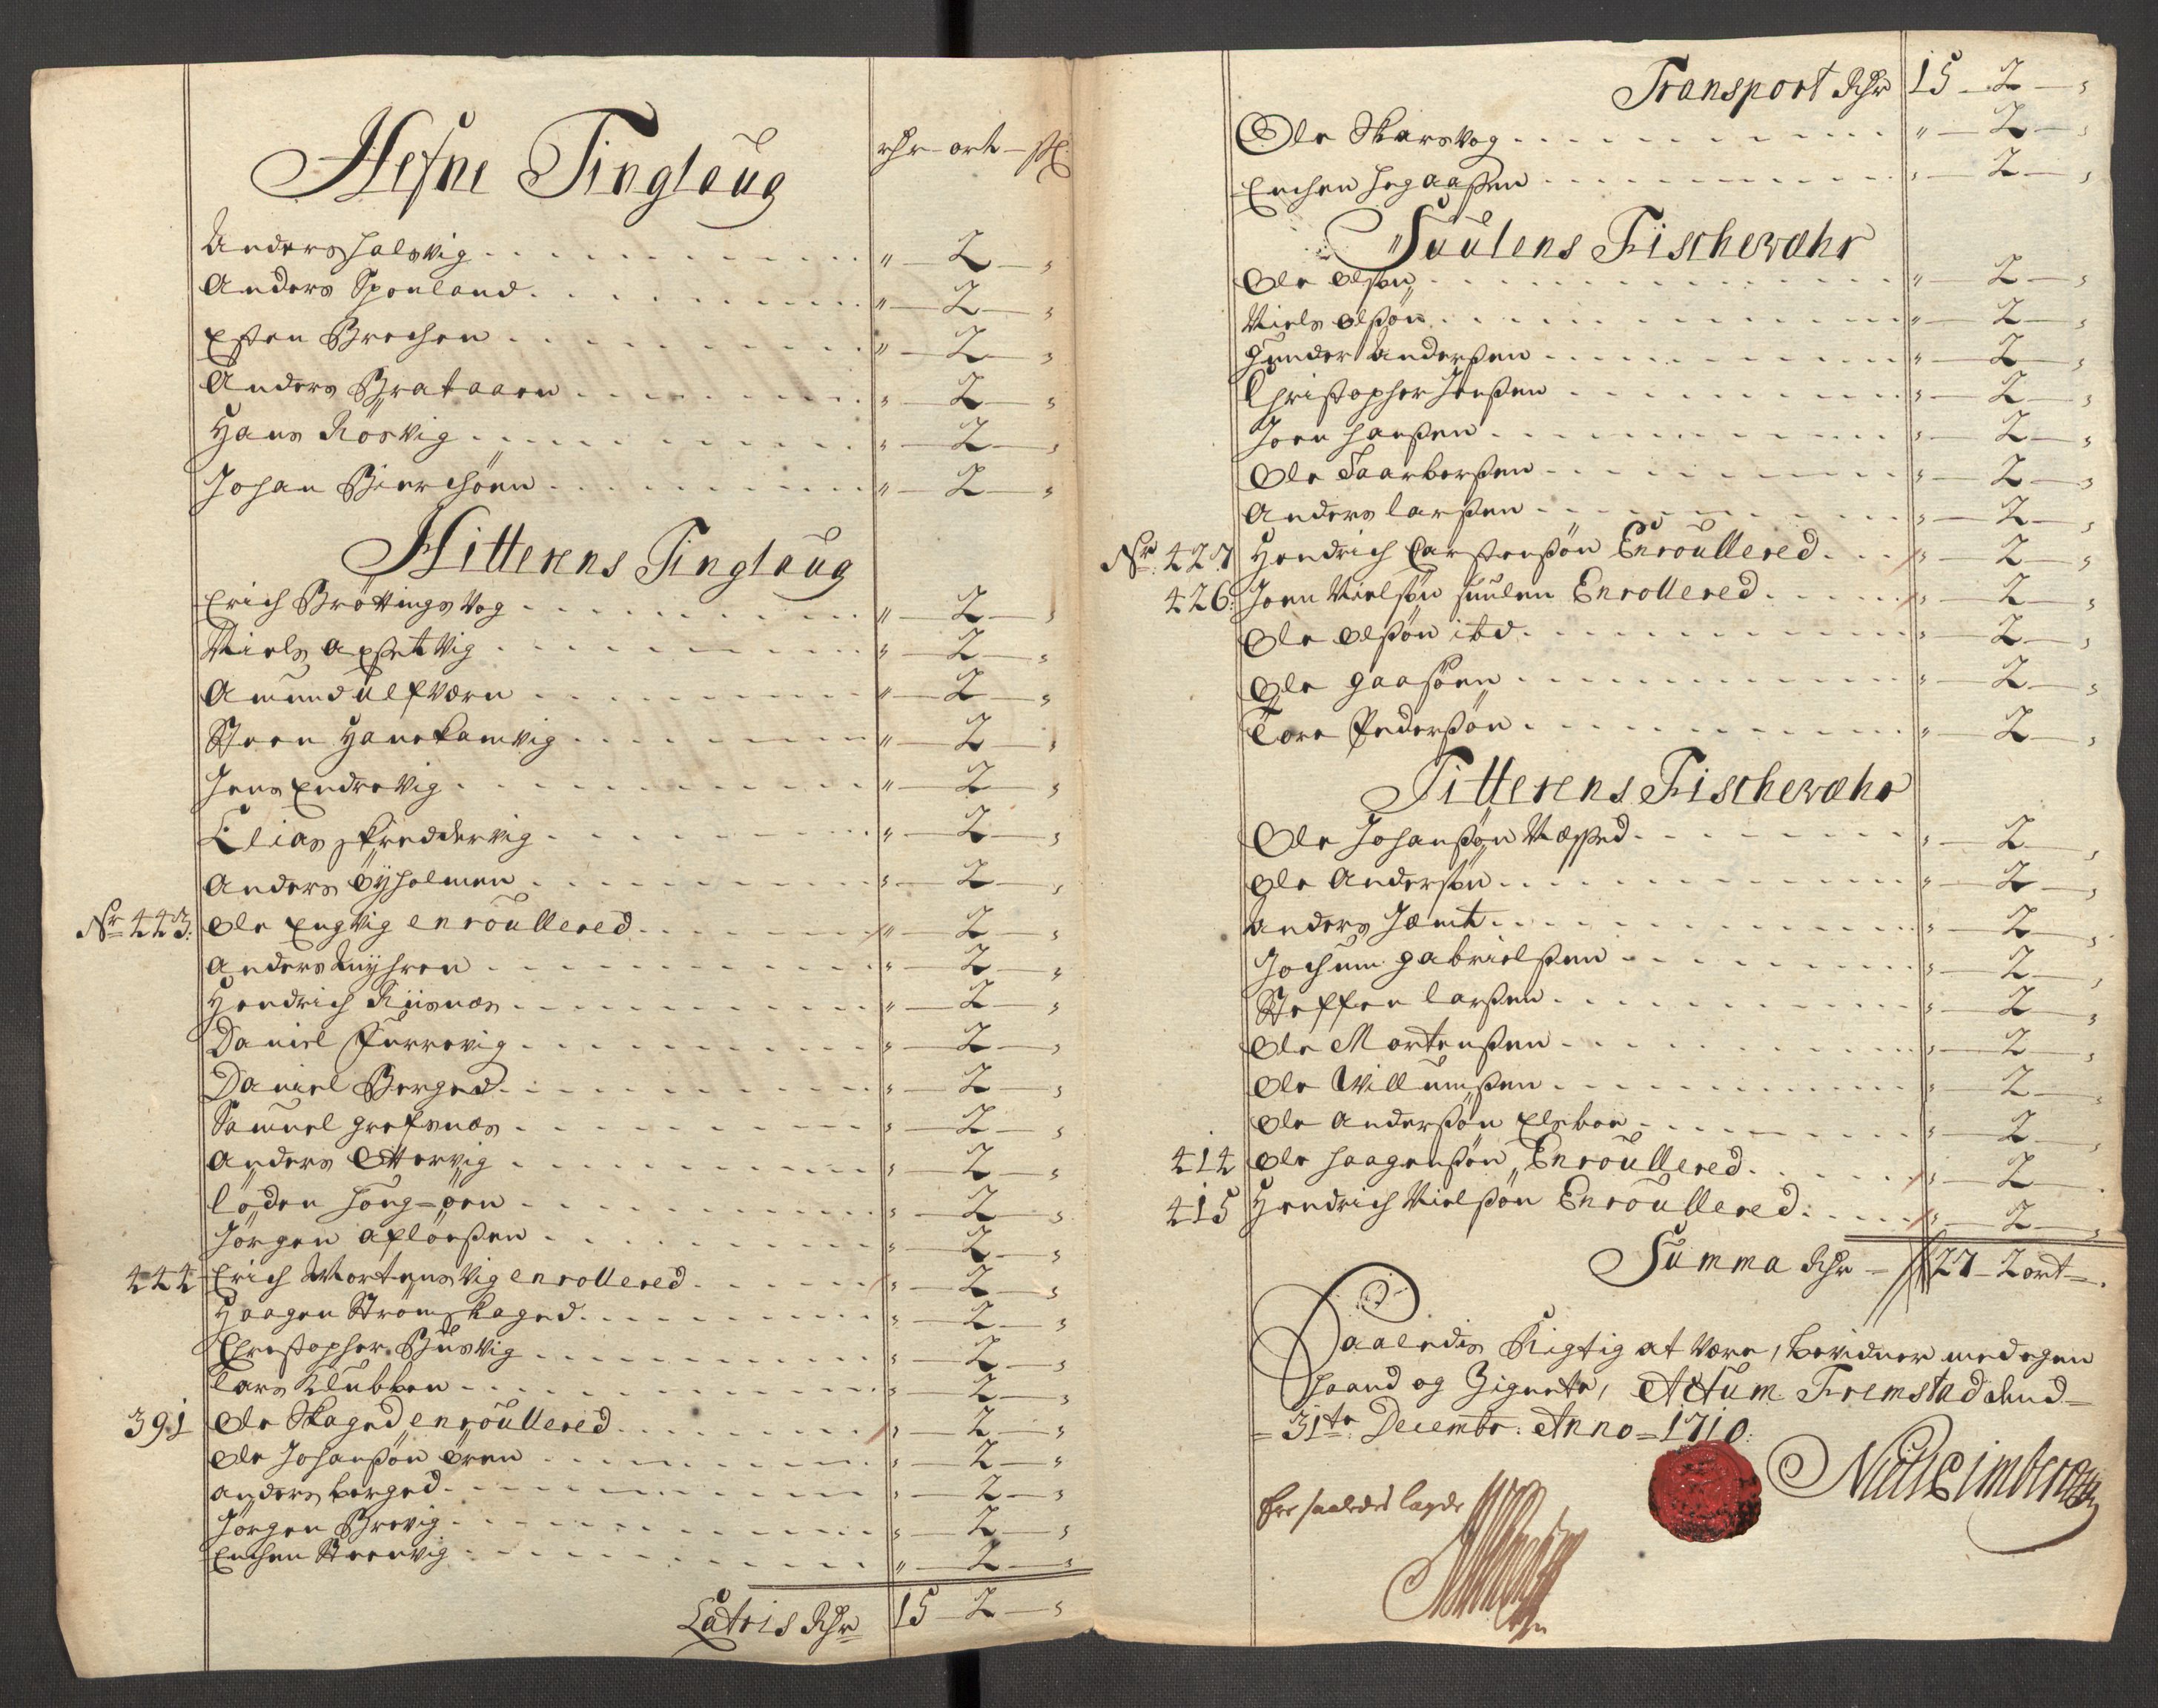 Hefne Tinglaug
rhr - ort - sl
Anders Halsvig . . . " — 2 — "
Anders Sponland . . . " — 2 — "
Esten Brechen . . . " — 2 — "
Anders Brataaen . . . " — 2 — "
Hans Rösvig . . . " — 2 — "
Johan Bierchöen . . . " — 2 — "
Hitterens Tinglaug
Erich Bröttingsvog . . . " — 2 — "
Niels Axsetvig . . . " — 2 — "
Amund Ulfværn . . . " — 2 — "
Steen Hanekamvig . . . " — 2 — "
Jens Endrevig . . . " — 2 — "
Elias Skreddervig . . . " — 2 — "
Anders Öyholmen . . . " — 2 — "
Nr 443. Ole Engvig enroullered . . . " — 2 — "
Anders Myhren . . . " — 2 — "
Hendrich Riisnæs . . . " — 2 — "
Daniel Furrevig . . . " — 2 — "
Daniel Berged . . . " — 2 — "
Samuel Grefsnæs . . . " — 2 — "
Anders Ottervig . . . " — 2 — "
Löden Hong=öen . . . " — 2 — "
Jörgen Aflöesßen . . . " — 2 — "
444 Erich Mortensvig enrollered . . . " — 2 — "
Haagen Strömskaged . . . " — 2 — "
Christopher Busvig . . . " — 2 — "
Lars Klubben . . . " — 2 — "
391 Ole Skaged enroullered . . . " — 2 — "
Ole Johanßön Ören . . . " — 2 — "
Anders Berged . . . " — 2 — "
Jörgen Brevig . . . " — 2 — "
Enchen Steenvig . . . " — 2 — "
Latris Rhr 15 — 2 — "
Transport Rhr 15 — 2 — "
Ole Skarsvog . . . " — 2 — "
Enchen Hegaaßen . . . " — 2 — "
Suulens Fischewæhr
Ole Olsøn . . . " — 2 — "
Niels Olßön . . . " — 2 — "
Gunder Anderßen . . . " — 2 — "
Christopher Jenßen . . . " — 2 — "
Joen Hanßen . . . " — 2 — "
Ole Taarberßen . . . " — 2 — "
Anders Larßen . . . " — 2 — "
Nr. 427 Hendrich Carstenßön Enroullered . . . " — 2 — "
426. Joen Nielsøn Suulen Enrollered . . . " — 2 — "
Ole Olßön ibd . . . " — 2 — "
Ole Gaasöen . . . " — 2 — "
Tore Pederßön . . . " — 2 — "
Titterens Fischewæhr
Ole Johanßön Næssed . . . " — 2 — "
Ole Andersøn . . . " — 2 — "
Anders Jæmt . . . " — 2 — "
Jochum Gabrielßen . . . " — 2 — "
Steffen Larßen . . . " — 2 — "
Ole Mortenßen . . . " — 2 — "
Ole Willumßen . . . " — 2 — "
Ole Anderßön Elsboe . . . " — 2 — "
414 Ole Haagenßön Enroullered . . . " — 2 — "
415 Hendrich Nielßön Enroullered . . . " — 2 — "
Summa Rhr — 27 — 2 ort — .
Saaledis Rigtig at være, bevidner med egen
Haand og Zignete, Actum Fremstad dend
31te Decembr. Anno 1710.
Er saaledes lagde